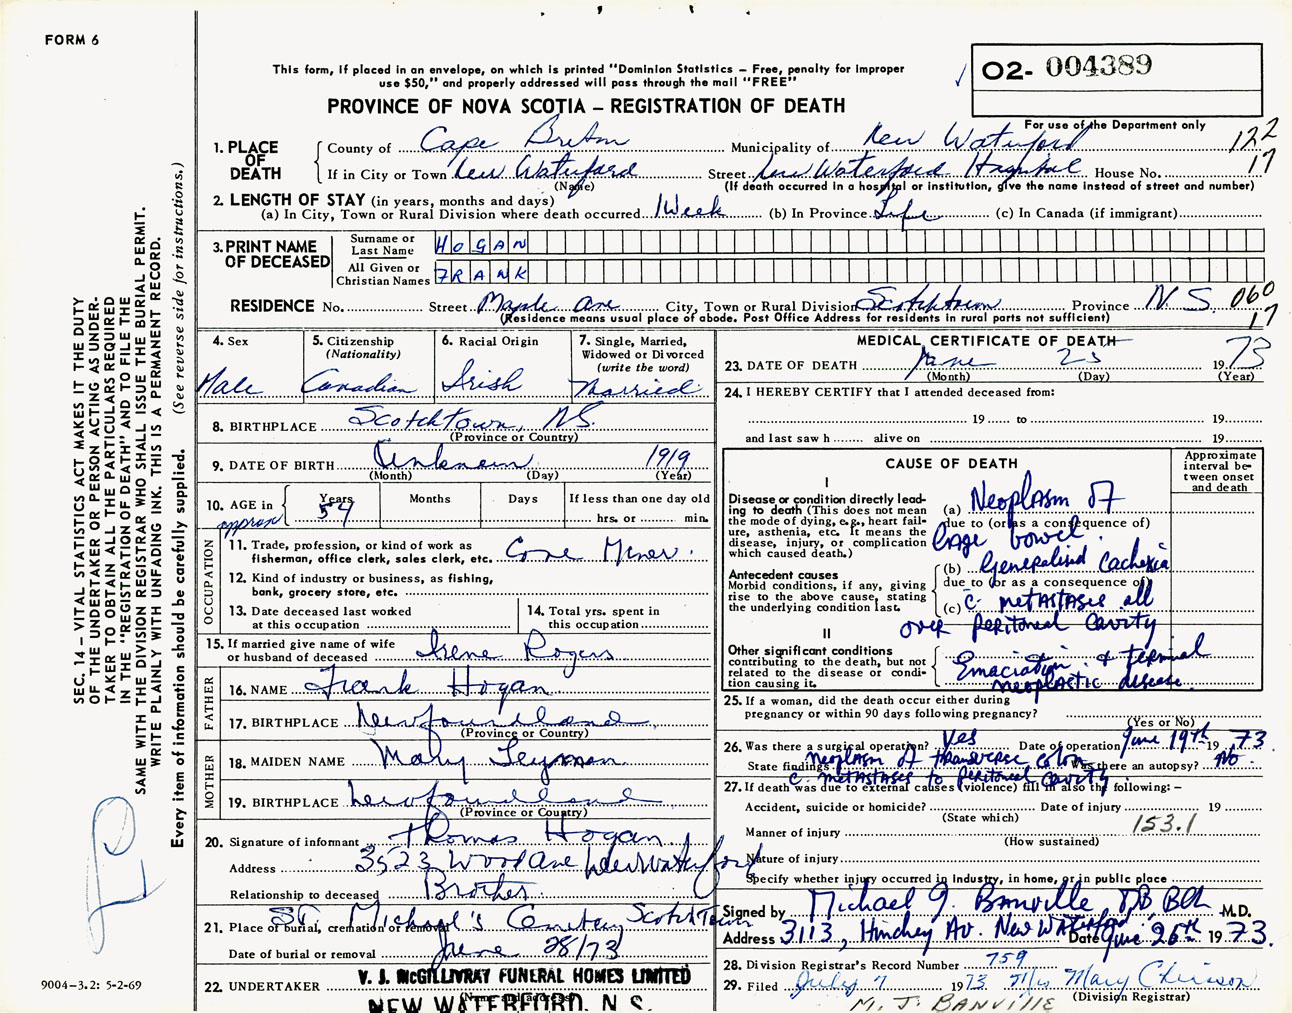 FORM 6
This form, if placed in an envelope, on which is printed "Dominion Statistics – Free, penalty for improper
use $50," and properly addressed will pass through the mail "FREE"
O2- 004389
PROVINCE OF NOVA SCOTIA – REGISTRATION OF DEATH
For use of the Department only
122
17
1. PLACE OF DEATH
County of Cape Breton Municipality of New Waterford
If in City or Town New Waterford Street New Waterford Hospital House No.
(Name) (If death occurred in a hospital or institution, give the name instead of street and number)
2. LENGTH OF STAY (in years, months and days)
(a) In City, Town or Rural Division where death occurred 1 Week (b) In Province Life (c) In Canada (if immigrant)
3. PRINT NAME OF DECEASED
Surname or Last Name HOGAN
All Given or Christian Names FRANK
RESIDENCE No. Street Maple Ave City, Town or Rural Division Scotchtown Province N.S. 060
17
(Residence means usual place of abode. Post Office Address for residents in rural parts not sufficient)
4. Sex Male
5. Citizenship (Nationality) Canadian
6. Racial Origin Irish
7. Single, Married, Widowed or Divorced (write the word) Married
8. BIRTHPLACE Scotchtown, N.S.
(Province or Country)
9. DATE OF BIRTH Unknown 1919
(Month) (Day) (Year)
10. AGE in approx Years 54 Months Days If less than one day old
hrs. or min.
OCCUPATION
11. Trade, profession, or kind of work as
fisherman, office clerk, sales clerk, etc. Coal Miner.
12. Kind of industry or business, as fishing,
bank, grocery store, etc.
13. Date deceased last worked
at this occupation
14. Total yrs. spent in
this occupation
15. If married give name of wife
or husband of deceased Irene Rogers
FATHER
16. NAME Frank Hogan
17. BIRTHPLACE Newfoundland
(Province or Country)
MOTHER
18. MAIDEN NAME Mary
19. BIRTHPLACE Newfoundland
(Province or Country)
20. Signature of informant Thomas Hogan
Address 3523 Wood Ave New Waterford
Relationship to deceased Brother
21. Place of burial, cremation or removal St. Michael's Cemetery Scotchtown
Date of burial or removal June 28/73
22. UNDERTAKER V. J. McGILLIVRAY FUNERAL HOMES LIMITED
(Name and address)
NEW WATERFORD, N. S.
MEDICAL CERTIFICATE OF DEATH
23. DATE OF DEATH June 25 1973
(Month) (Day) (Year)
24. I HEREBY CERTIFY that I attended deceased from:
19 to 19
and last saw h alive on 19
CAUSE OF DEATH
Approximate interval between onset and death
I
Disease or condition directly leading to death (This does not mean the mode of dying, e.g., heart failure, asthenia, etc. It means the disease, injury, or complication which caused death.)
(a) Neoplasm of
due to (or as a consequence of)
large bowel.
Antecedent causes
Morbid conditions, if any, giving rise to the above cause, stating the underlying condition last.
(b) Generalised Cachexia
due to (or as a consequence of)
(c) c̄ metastases all
over Peritoneal Cavity
II
Other significant conditions
contributing to the death, but not related to the disease or condition causing it.
Emaciation & terminal
neoplastic disease.
25. If a woman, did the death occur either during
pregnancy or within 90 days following pregnancy?
(Yes or No)
26. Was there a surgical operation? Yes Date of operation June 19th 1973
State findings neoplasm of transverse colon Was there an autopsy? No
c̄ metastases to peritoneal cavity
27. If death was due to external causes (violence) fill in also the following: –
Accident, suicide or homicide? Date of injury 19
(State which)
Manner of injury 153.1
(How sustained)
Nature of injury
Specify whether injury occurred in industry, in home, or in public place
Signed by Michael J. Banville M.D.
Address 3113, Hinchey Av. New Waterford Date June 26th 1973.
28. Division Registrar's Record Number 759
29. Filed July 7 1973 Mrs Mary
(Division Registrar)
M. J. BANVILLE
SEC. 14 – VITAL STATISTICS ACT MAKES IT THE DUTY
OF THE UNDERTAKER OR PERSON ACTING AS UNDER-
TAKER TO OBTAIN ALL THE PARTICULARS REQUIRED
IN THE "REGISTRATION OF DEATH" AND TO FILE THE
SAME WITH THE DIVISION REGISTRAR WHO SHALL ISSUE THE BURIAL PERMIT.
WRITE PLAINLY WITH UNFADING INK. THIS IS A PERMANENT RECORD.
Every item of information should be carefully supplied. (See reverse side for instructions.)
9004-3.2: 5-2-69